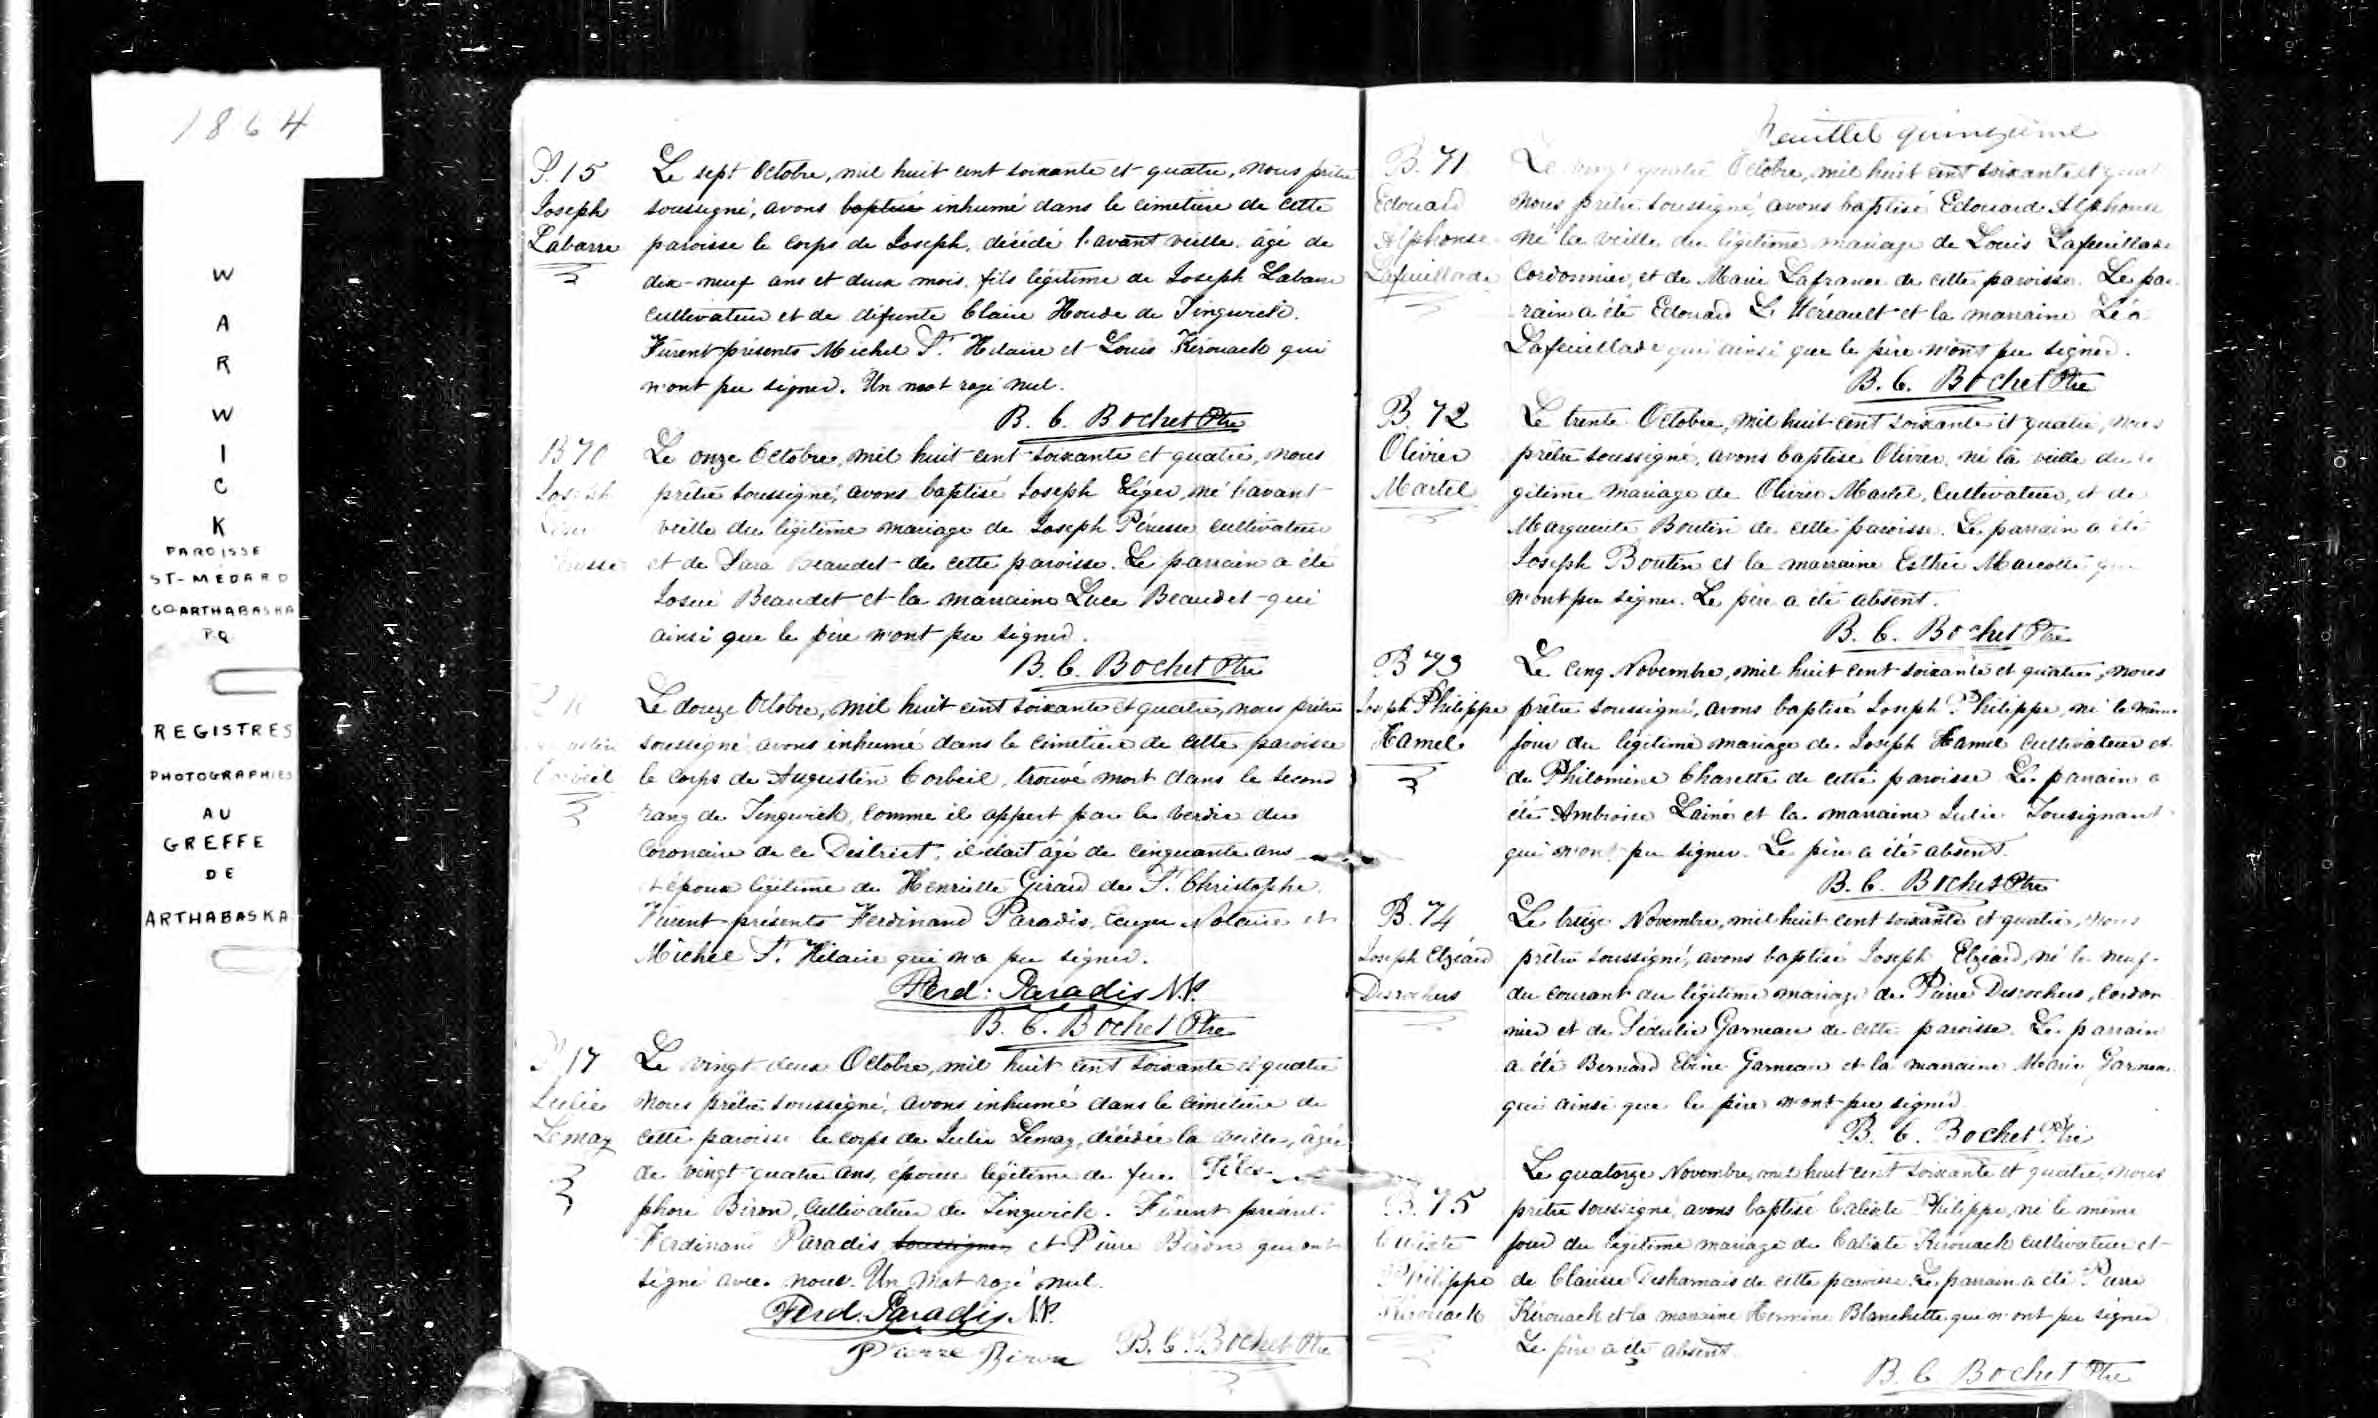 1864
W
A
R
W
I
C
K
PAROISSE
ST-MÉDARD
CO ARTHABASKA
P.Q
REGISTRES
PHOTOGRAPHIES
AU
GREFFE
DE
ARTHABASKA
S. 15
Joseph
Labarre
Le sept Octobre, mil huit cent soixante et quatre, nous prêtre
soussigné, avons baptisé inhumé dans le cimetière de cette
paroisse le corps de Joseph, décédé l'avant veille, âgé de
dix-neuf ans et deux mois, fils légitime de Joseph Labarre
cultivateur et de défunte Claire Houde de Tingwick.
Furent présents Michel St. Hilaire et Louis Kérouack qui
n'ont pu signer. Un mot rayé nul.
B. C. Bochet Ptre
B 70
Joseph
Léger
Pérusse
Le onze Octobre, mil huit cent soixante et quatre, nous
prêtre soussigné, avons baptisé Joseph Léger, né l'avant-
veille du légitime mariage de Joseph Pérusse cultivateur
et de Sara Beaudet de cette paroisse. Le parrain a été
Josué Beaudet et la marraine Luce Beaudet qui
ainsi que le père n'ont pu signer.
B. C. Bochet Ptre
Corbeil
Le douze Octobre, mil huit cent soixante et quatre, nous prêtre
soussigné avons inhumé dans le cimetière de cette paroisse
le corps de Augustin Corbeil, trouvé mort dans le second
rang de Tingwick, comme il appert par le verdic du
Coronaire de ce District, il était âgé de cinquante ans
et époux légitime de Henriette Girard de St. Christophe.
Furent présents Ferdinand Paradis, Ecuyer Notaire et
Michel St. Hilaire qui n'a pu signer.
Ferd: Paradis N.P.
B. C. Bochet Ptre
S 17
Julie
Lemay
Le vingt deux Octobre, mil huit cent soixante et quatre
nous prêtre soussigné, avons inhumé dans le cimetière de
cette paroisse le corps de Julie Lemay, décédée la veille, âgée
de vingt quatre ans, épouse légitime de feu Téles-
phore Biron, cultivateur de Tingwick. Furent présents
Ferdinand Paradis soussignés et Pierre Biron qui ont
signé avec nous. Un mot rayé nul.
Ferd. Paradis N.P.
Pierre Biron
B. C. Bochet Ptre
Feuillet quinzième
B. 71
Edouard
Alphonse
Lafeuillade
Le vingt quatre Octobre, mil huit cent soixante et quat
nous prêtre soussigné, avons baptisé Edouard Alphonse
né la veille du légitime mariage de Louis Lafeuillade
Cordonnier, et de Marie Lafrance de cette paroisse. Le par
rain a été Edouard L'Héreault et la marraine Léa
Lafeuillade qui ainsi que le père n'ont pu signer.
B. C. Bochet Ptre
B. 72
Olivier
Martel
Le trente Octobre, mil huit cent soixante et quatre, nous
prêtre soussigné, avons baptisé Olivier, né la veille du lé
gitime mariage de Olivier Martel, cultivateur, et de
Marguerite Boutin de cette paroisse. Le parrain a été
Joseph Boutin et la marraine Esther Marcotte qui
n'ont pu signer. Le père a été absent.
B. C. Bochet Ptre
B 73
Joseph Philippe
Hamel
Le cinq Novembre, mil huit cent soixante et quatre, nous
prêtre soussigné, avons baptisé Joseph Philippe, né le même
jour du légitime mariage de Joseph Hamel cultivateur et
de Philomène Charette de cette paroisse Le parrain a
été Ambroise Lainé et la marraine Julie Tousignant
qui n'ont pu signer. Le père a été absent.
B. C. Bochet Ptre
B. 74
Joseph Elzéard
Desrochers
Le treize Novembre, mil huit cent soixante et quatre, nous
prêtre soussigné, avons baptisé Joseph Elzéard, né le neuf
du courant du légitime mariage de Pierre Desrochers, cordon
nier et de Sédulie Garneau de cette paroisse. Le parrain
a été Bernard Garneau et la marraine Marie Garneau
qui ainsi que le père n'ont pu signer
B. C. Bochet Ptre
B. 75
Calixte
Philippe
Kérouack
Le quatorze Novembre, mil huit cent soixante et quatre, nous
prêtre soussigné, avons baptisé Calixte Philippe, né le même
jour du légitime mariage de Calixte Kérouack cultivateur et
de Clarisse Desharnais de cette paroisse. Le parrain a été Pierre
Kérouack et la marraine Hermine Blanchette qui n'ont pu signer
Le père a été absent.
B. C. Bochet Ptre